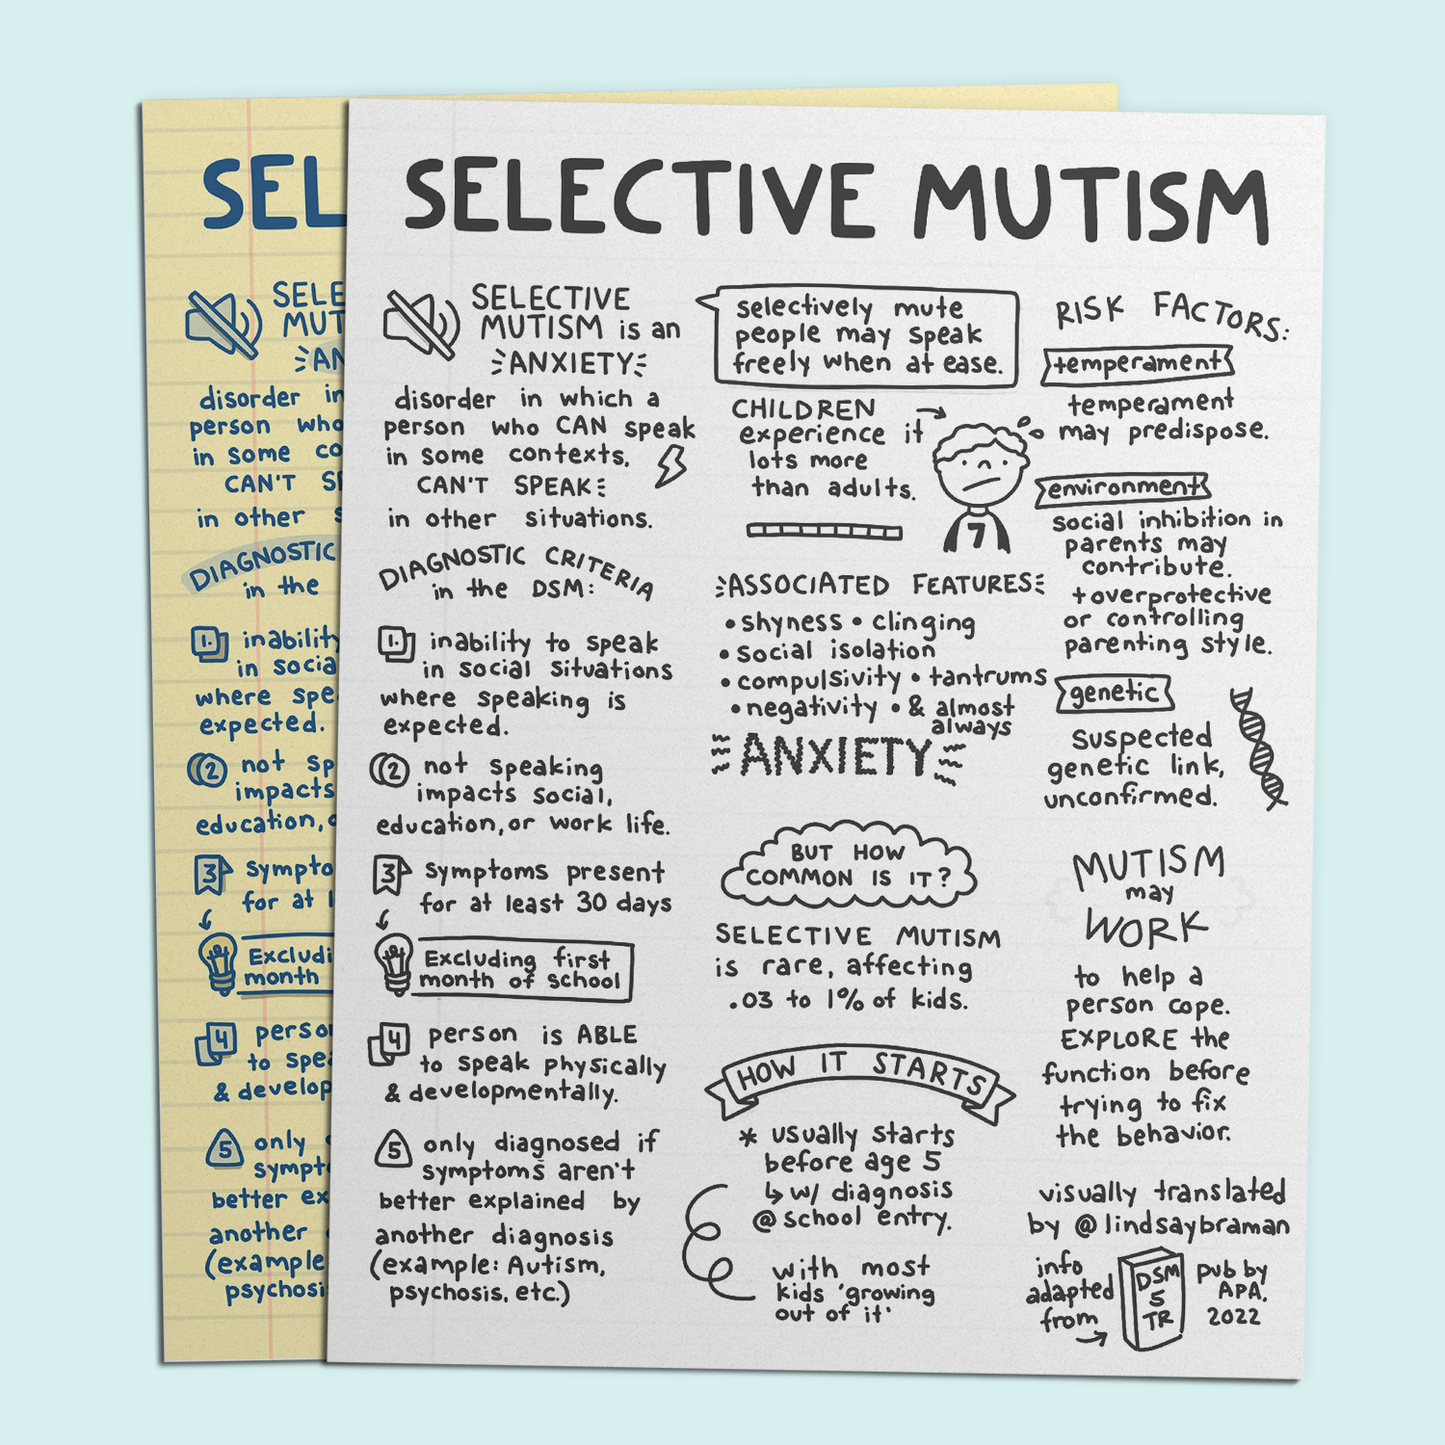 SEL
SELE
MUT
AN
disorder in
person who
in some co
CAN'T SP
in other s
DIAGNOSTIC
in the
1. inability
in socia
where spe
expected.
2 not sp
impacts
education, o
3 sympto
for at l
Excludi
month
4 perso
to spea
& develop
5 only
sympt
better ex
another
(example
psychosi
SELECTIVE MUTISM
SELECTIVE
MUTISM is an
ANXIETY
disorder in which a
person who CAN speak
in some contexts,
CAN'T SPEAK
in other situations.
DIAGNOSTIC CRITERIA
in the DSM:
1. inability to speak
in social situations
where speaking is
expected.
2 not speaking
impacts social,
education, or work life.
3 symptoms present
for at least 30 days
Excluding first
month of school
4 person is ABLE
to speak physically
& developmentally.
5 only diagnosed if
symptoms aren't
better explained by
another diagnosis
(example: Autism,
psychosis, etc.)
selectively mute
people may speak
freely when at ease.
CHILDREN
experience it
lots more
than adults.
7
ASSOCIATED FEATURES
• shyness • clinging
• social isolation
• compulsivity • tantrums
• negativity • & almost
always
ANXIETY
BUT HOW
COMMON IS IT?
SELECTIVE MUTISM
is rare, affecting
.03 to 1% of kids.
HOW IT STARTS
* usually starts
before age 5
↳ w/ diagnosis
@ school entry.
with most
kids 'growing
out of it'
RISK FACTORS:
temperament
temperament
may predispose.
environment
social inhibition in
parents may
contribute.
+ overprotective
or controlling
parenting style.
genetic
suspected
genetic link,
unconfirmed.
MUTISM
may
WORK
to help a
person cope.
EXPLORE the
function before
trying to fix
the behavior.
visually translated
by @lindsaybraman
info
adapted
from
DSM
5
TR
pub by
APA.
2022